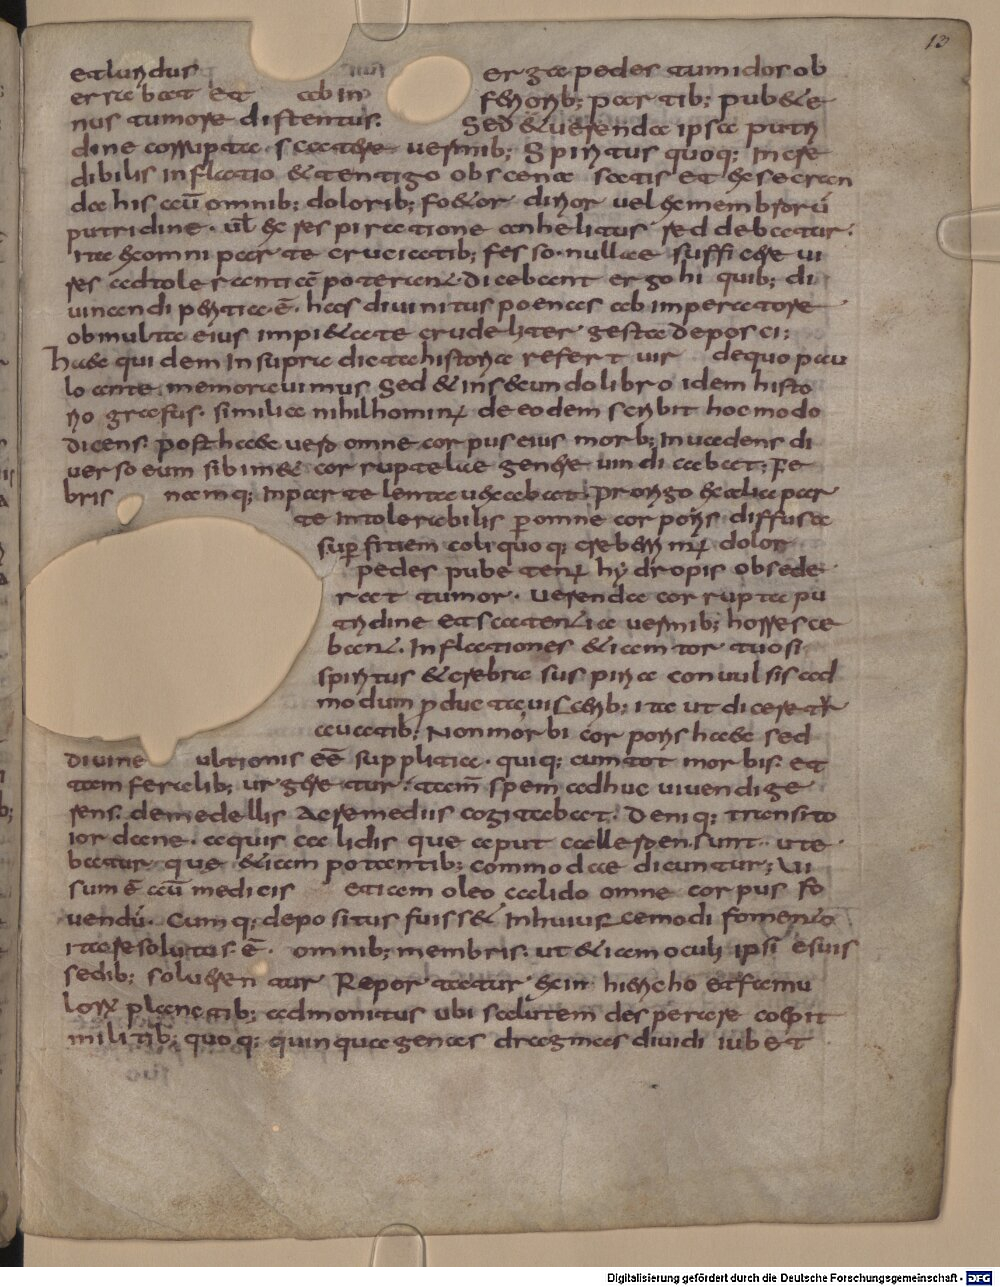 13
et luridus erga pedes tumidos ob
errabat et ab in femorib; partib; pub& e
nus tumore distentus. Sed & uerenda ipsa putri
dine corrupta scatere uermib; Spiritus quoq; incre
dibilis inflatio & tentigo obscena satis et execran
da his cū omnib; dolorib; foetor dirior uel ex membrorū
putridine. ut ex respiratione anhelitus reddebatur.
ita ex omni parte cruciatib; fesso. nullae sufficere ui
res ad tolerantiā poterant. Dicebant ergo hi quib; di
uinandi peritia ē. has diuinitus poenas ab imperatore
ob multa eius impie & crudeliter gesta deposci;
haec quidem in supra dicta historia refert uir de quo pau
lo ante memorauimus Sed & in secundo libro idem histo
riografus. similia nihilhomin; de eodem scribit hoc modo
dicens. post haec uero omne corpus eius morb; inuadens di
uerso eum sibim& corruptelae genere uindicabat; Fe
bris namq; in parte lenta uexabat. Prorigo ex alia par
te intolerabilis p omne corporis diffusa
superficiem coli quoq; creberrimi dolor
pedes pube ten; hydropis obsede
rat tumor. uerenda corrupta pu
tridine et scatentia uermib; horresce
bant. Inflationes & iam tortuosi
spiritus & crebra suspiria conuulsis ad
modum pducta uiscerib; ita ut dicere
a uatib; Non morbi corporis haec sed
diuine ultionis eē supplicia. quiq; cum tot morbis et
tam feralib; urgeretur. tam spem adhuc uiuendi ge
rens. de medellis ac remediis cogitabat. Deniq; transito
iordane. aquis calidis que aput calleroen sunt. ute
batur. que & iam potantib; commodae dicuntur; Ui
sum ē aū medicis etiam oleo calido omne corpus fo
uendū. Cumq; depositus fuiss& in huiuscemodi fomento
ita resolutus. ē. omnib; membris. ut & iam oculi ipsi e suis
sedib; soluerentur Reportatur in hiericho et famu
lorum planctib; admonitus ubi salutem desperare coepit
militib; quoq; quinquagenas dragmas diuidi iubet
Digitalisierung gefördert durch die Deutsche Forschungsgemeinschaft - DFG